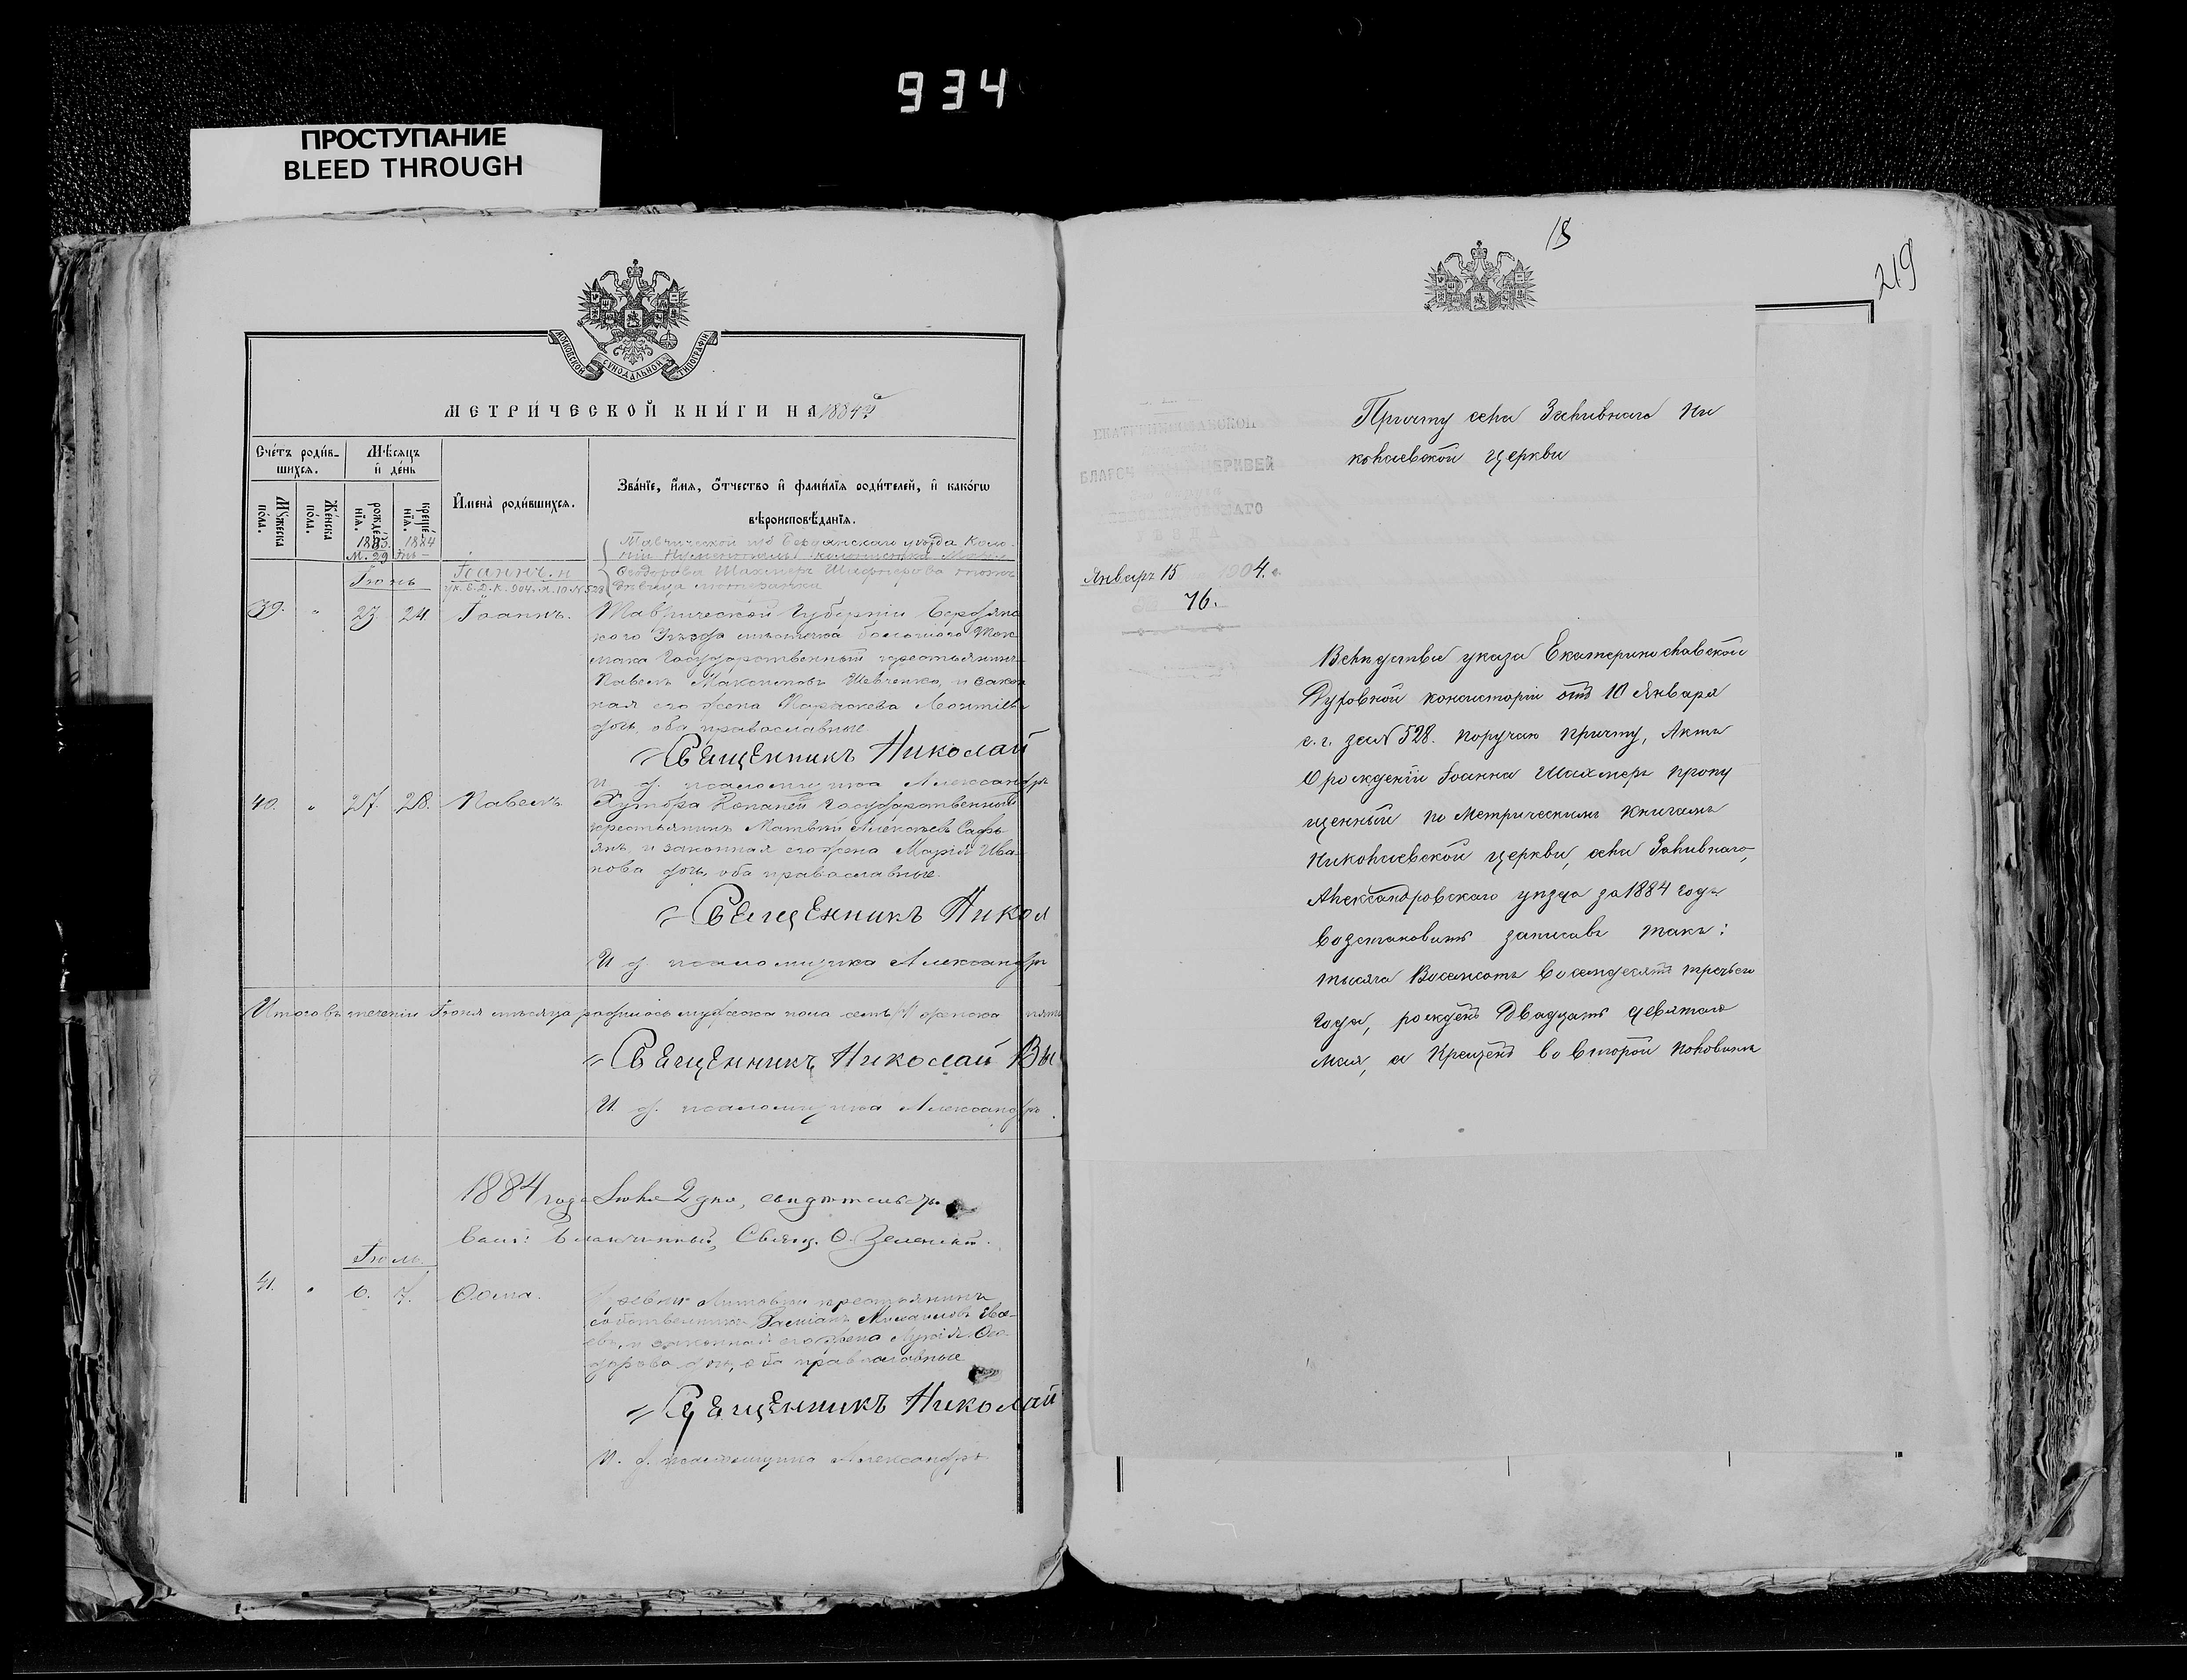 934
ПРОСТУПАНИЕ
BLEED THROUGH
МОСКОВСКОЙ СѴНОДАЛЬНОЙ ТИПОГРАФІИ
МЕТРИ́ЧЕСКОЙ КНИ́ГИ НА 1884й
Сче́тъ роди́в-
шихся.
Мѣ́сяцъ
и҆ де́нь
Мꙋ́жеска
по́ла.
Же́нска
по́ла.
рожде́-
нїѧ.
креще́-
нїѧ.
И҆мена̀ роди́вшихся.
Зва́нїе, и҆́мя, ѻ҆́тчество и҆ фами́лїѧ роди́телей, и҆ како́гѡ
вѣроисповѣ́данїѧ.
1883. 1884
М. 29
Таврической губ Бердянскаго уѣзда Коло-
ніи
Іоаннъ. н
Ѳеодорова Шахмеръ
Ук. Е. Д. К. 904. Я. 10 N 528
дѣвица лютеранка
Іюнь
39. " 23. 24. Іоаннъ. Таврической Губерніи Бердянс
кого Уѣзда мѣстечка большого Ток
мака Государственный крестьянинъ
Павелъ Максимовъ Шевченко, и закон
ная его жена Параскева Леонтіева
дочь, оба православные.
Священникъ Николай
И. д. псаломщика Александръ
40. " 27. 28. Павелъ Хутора Копаней Государственный
крестьянинъ Матвѣй Алексѣевъ Сафь
янъ, и законная его жена Марія Ива
нова дочь, оба православные.
Священникъ Никол
И д. псаломщика Александръ
Итого въ теченіи Іюня мѣсяца родилось мужеска пола семь женска пять
Священникъ Николай Вы
И. д. псаломщика Александръ
1884 года Іюля 2 дня, свидѣтельст.
валъ: Благочинный, Свящ. Ѳ. Зеленскій.
Іюль.
41. " 6. 7. Ѳома. Деревни крестьянинъ
собственникъ Даміанъ Михаиловъ
евъ, и законная его жена Лукія Ѳео
дорова дочь, оба православные
Священникъ Николай
И. д. псаломщика Александръ
18
219
ЕКАТЕРИНОСЛАВСКОЙ
БЛАГОЧ ЦЕРКВЕЙ
Январь 15 1904.
76.
Причту села Заливнаго Ни
колаевской церкви
Вслѣдствіе указа Екатеринославской
Духовной консисторіи отъ 10 Января
с. г. за N 528. поручаю причту, Актъ
О рожденіи Іоанна Шахмеръ пропу
щенный по Метрическимъ книгамъ
Николаевской церкви, села Заливнаго,
Александровскаго уѣзда за 1884 годъ
Возстановить записавъ такъ:
тысяча Восемсотъ восемдесятъ третьего
года, рожденъ Двадцать девятого
мая, а Крещенъ во второй половинѣ